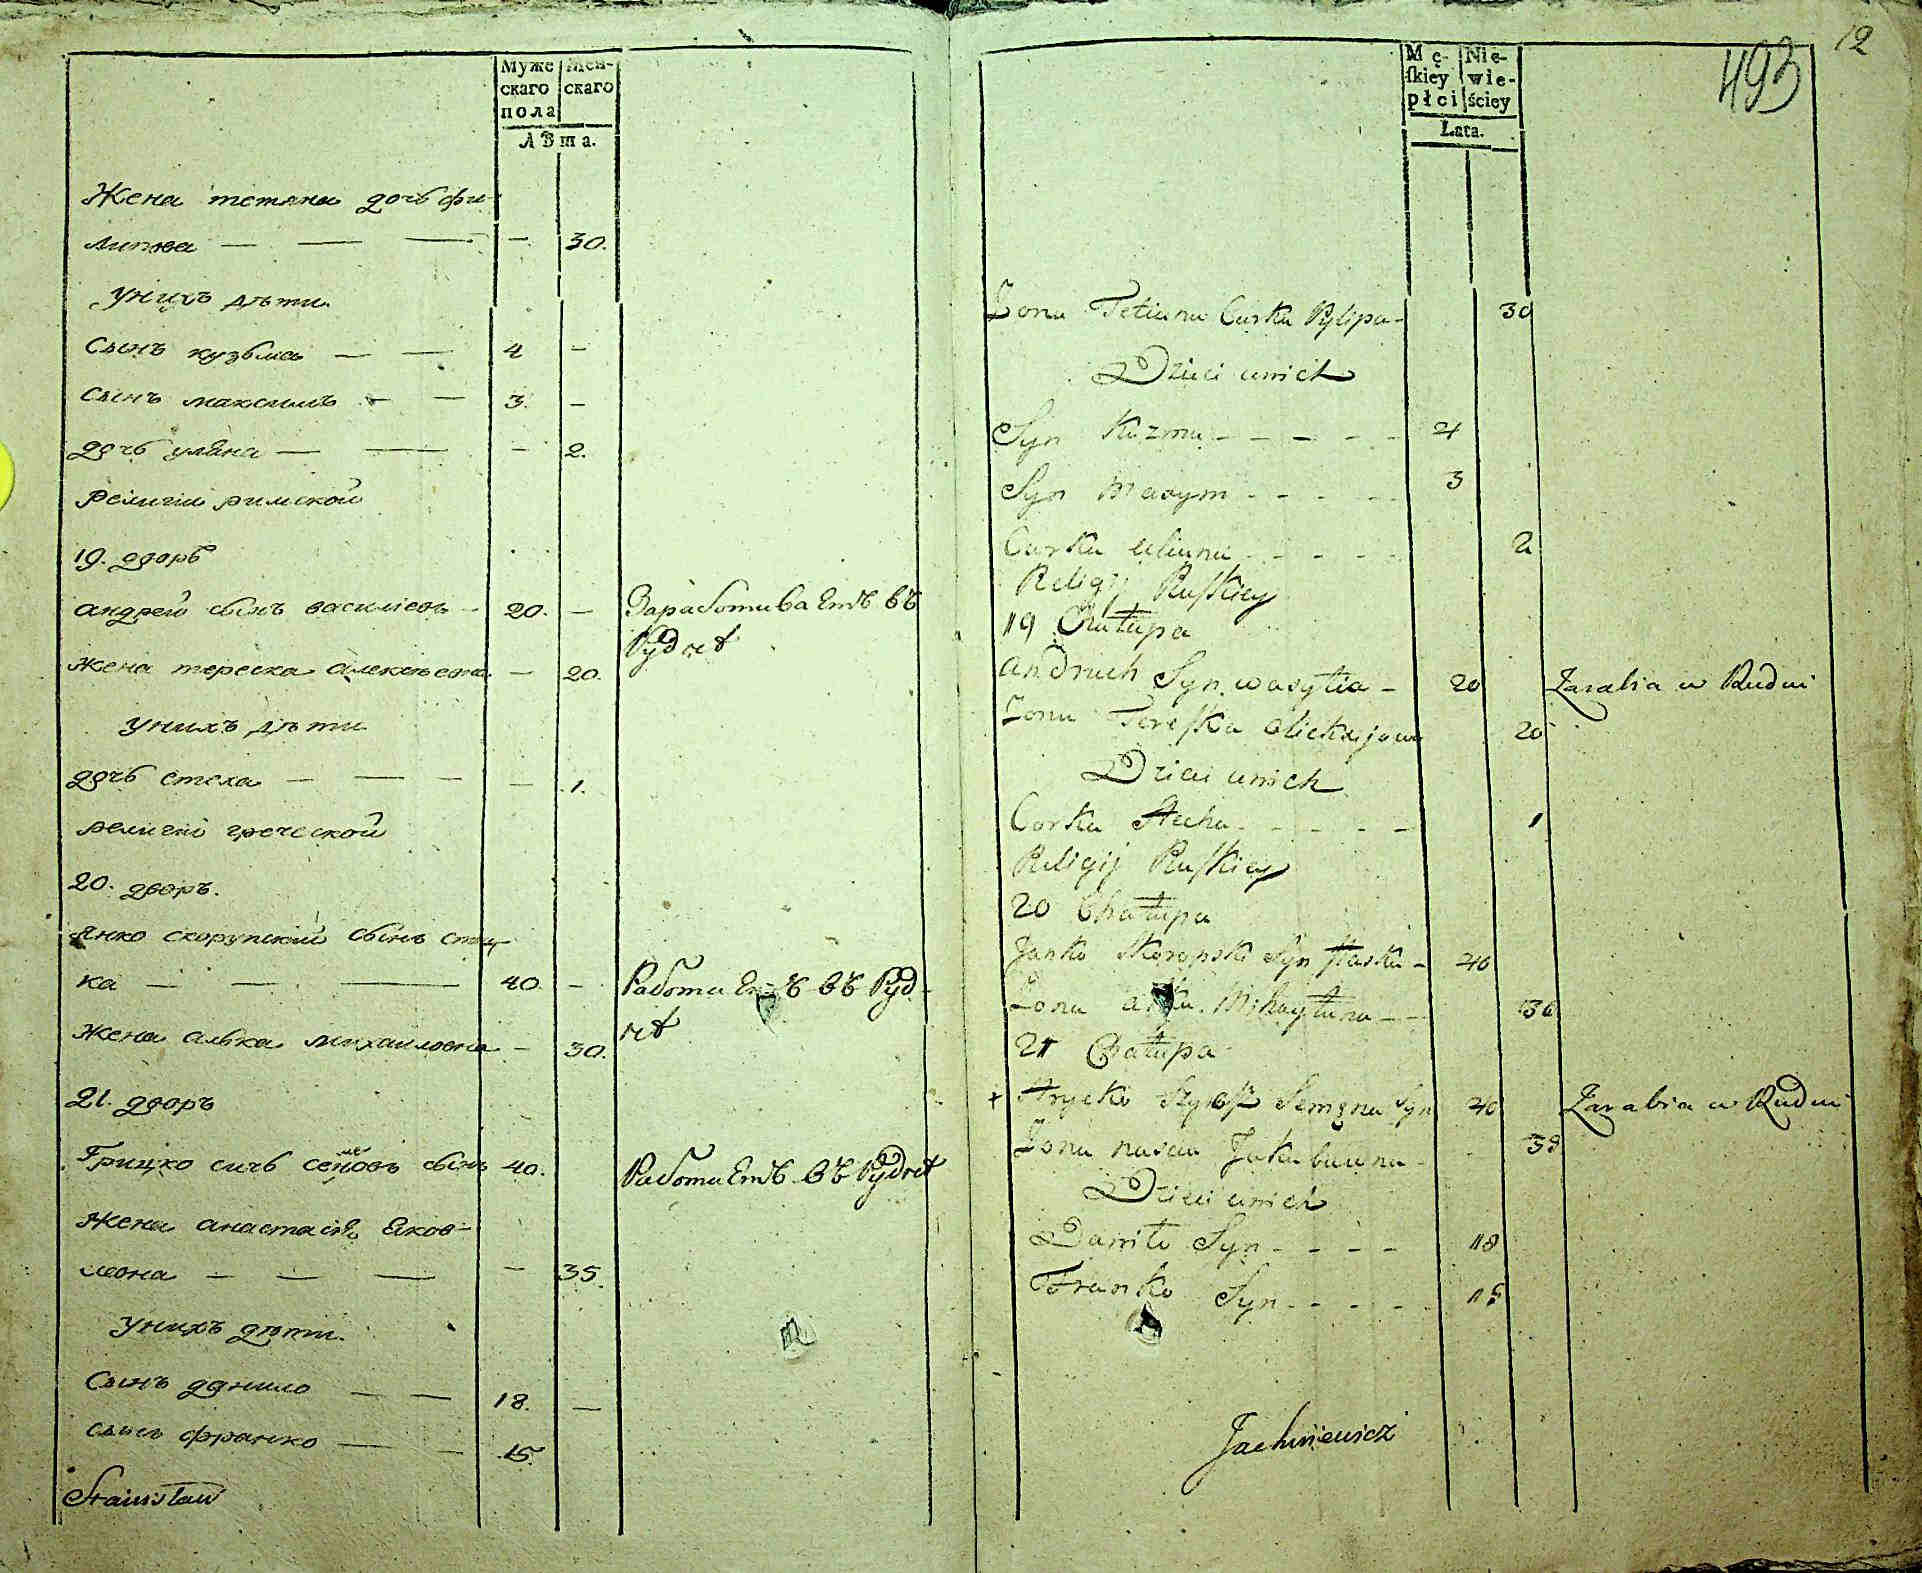 Муже
скаго
пола
Жен-
скаго
Лѣта.
Жена тетяна дочь фи-
липова — — — — 30.
унихъ дѣти.
Сынъ кузьма — — 4 —
Сынъ максимъ — — 3. —
дочь уляна — — — 2.
религіи римской
19. дворъ
андрей сынъ василіевъ — 20. — Заработиваетъ въ
Рудне
Жена тереска алексѣева. — 20.
унихъ дѣти
дочь стеха — — — — 1.
религіи греческой
20. дворъ.
Янко скорупскій сынъ стас
ка — — — 40. — Работаетъ въ Руд-
не
Жена алька михаиловна — 30.
21. дворъ
Грицко сичь сѣновъ сынъ 40. Работаетъ въ Рудне
ме
Жена анастасія Яков-
левна — — — — 35.
унихъ дѣти.
Сынъ данило — — 18. —
сынъ франко — — 15.
Stanisław
12
493
Mę-
skiey
płci
Nie-
wie-
ściey
Lata.
Żona Tetiana Curka Pylipa - 30
Dzieci unich
Syn Kuzma - - - - - 4
Syn Maxym - - - - 3
Curka Uliana - - - - 2
Religij Ruskiey
19 Chałupa
andruch Syn wasyla - 20 Zarabia w Rudni
Żona Tereska Olieksijowa 20
Dzieci unich
Corka Stecha - - - - - 1
Religij Ruskiey
20 Chałupa
Janko Skorupski Syn Staska - 40
Żona Mihayłuna - - 30
21 Chałupa
+ Hrycko Semena Syn 40 Zarabia w Rudni
Żona nascia Jakubauna - - 38
Dzieci unich
Daniło Syn - - - - 18
Franko Syn - - - - 15
Jachniewicz